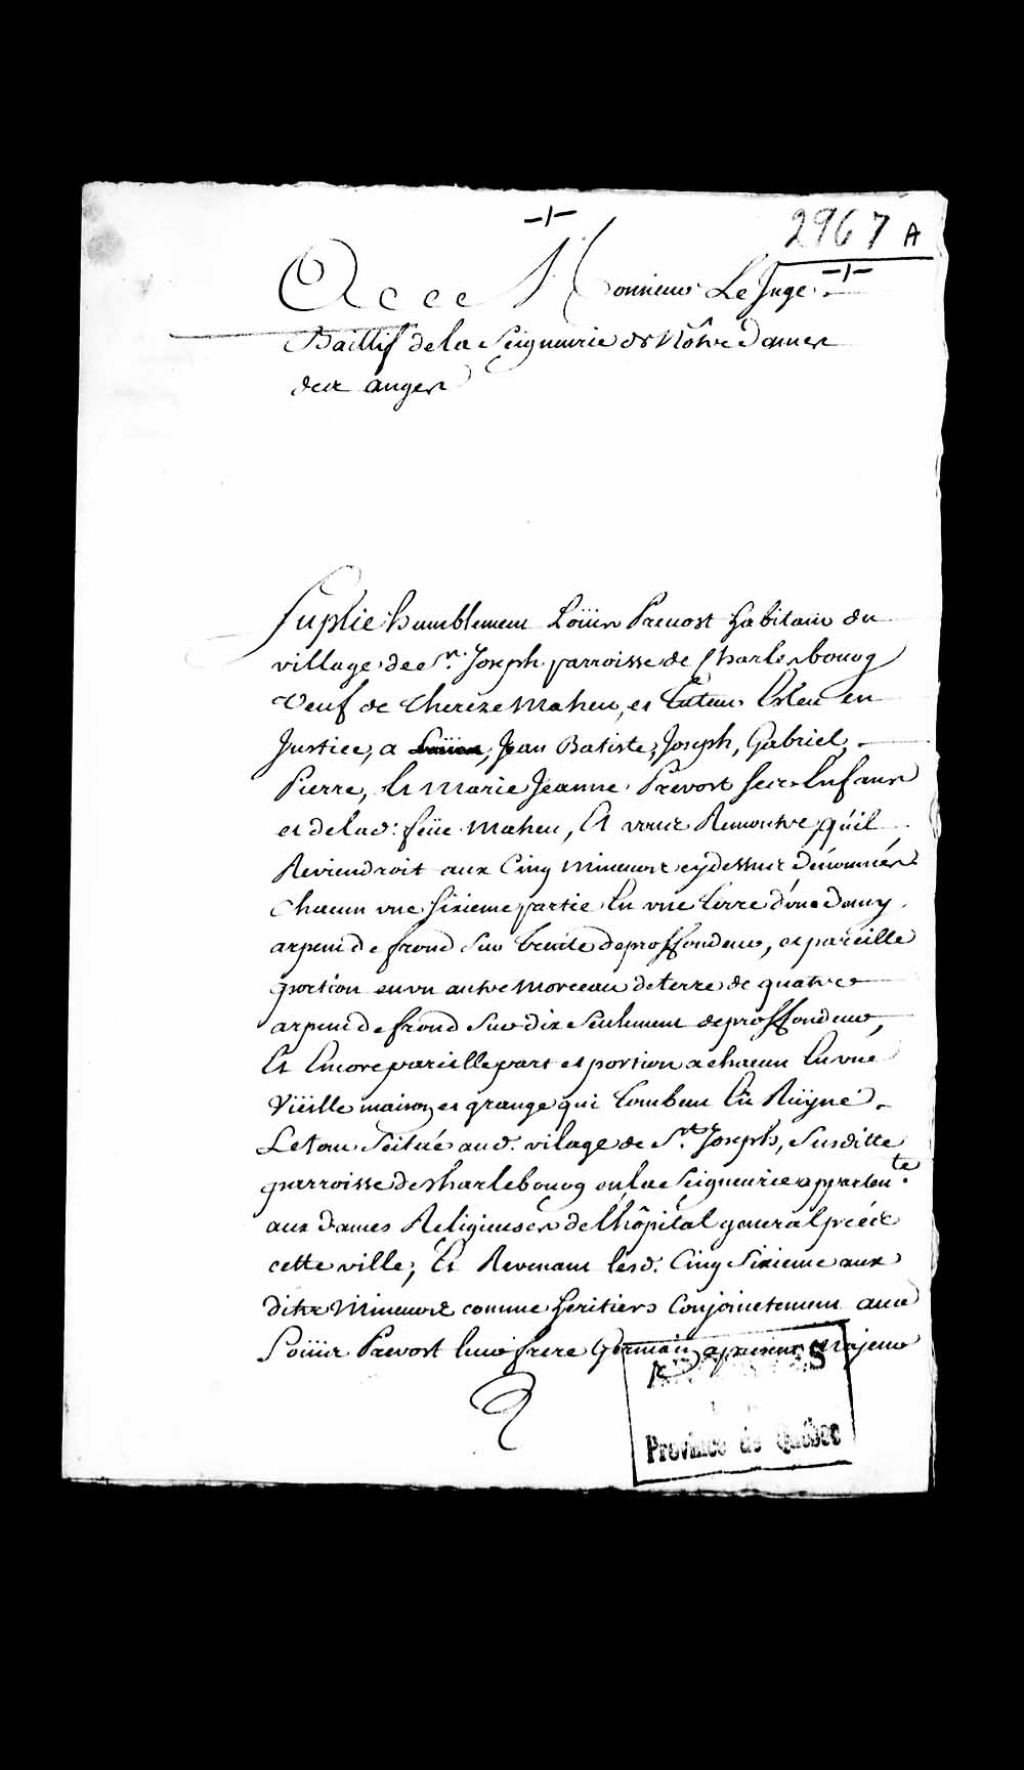 -/-
2967 A
-/-
A Monsieur Le Juge
Baillif de la Seigneurie de Nôtre Dame
des anges
Suplie humblement Loüis Prevost habitant du
village de St. Joseph parroisse de Charlesbourg
Veuf de Therèze Maheu, et tuteur Esleu en
Justice, a Loüis, Jean Batiste, Joseph, Gabriel,
Pierre, Et Marie Jeanne Prevost ses Enfans
et de lad: feüe Maheu, Et vous Remontre, qu'il
Reviendroit aux Cinq Mineurs cy dessus dénommés
Chacun une sixieme partie En une terre d'un
arpent de frond sur trente de proffondeur, et pareille
portion en un autre morceau de terre de quatre
arpent de frond sur dix seulement de proffondeur,
Et Encore pareille part et portion a chacun En une
Vieille maison et grange qui tombent En Ruÿne
Le tout scitué aud. vilage de St. Joseph, susditte
parroisse de Charlebourg ou la Seigneurie appartent.te
aux Dames Religieuses de l'hôpital general prés
cette ville; Et Revenant lesd. Cinq Sixieme aux
dits Mineurs comme heritiers Conjointement avec
Loüis Prevost leur frere Germain a present Majeur
ARCHIVES
Province de Québec